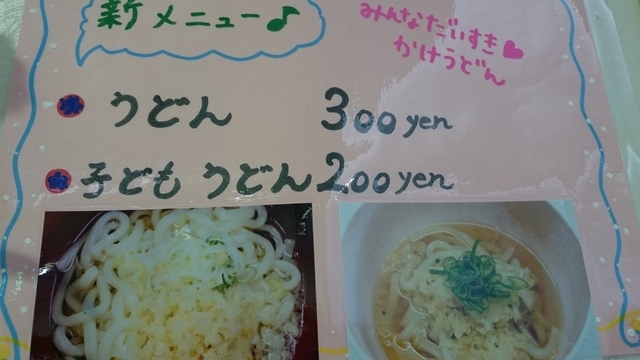 新メニュー♪
みんなだいすき♥
かけうどん
うどん 300yen
子どもうどん 200yen